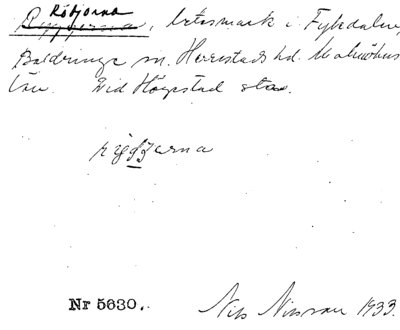 Röbjorna
Ryggjerna, betesmark i Fyledalen,
Baldringe sn. Herrestads hd. Malmöhus
län. Vid Högestad stas.
rygjerna
Nr 5630.
Nils Nilsson 1933.